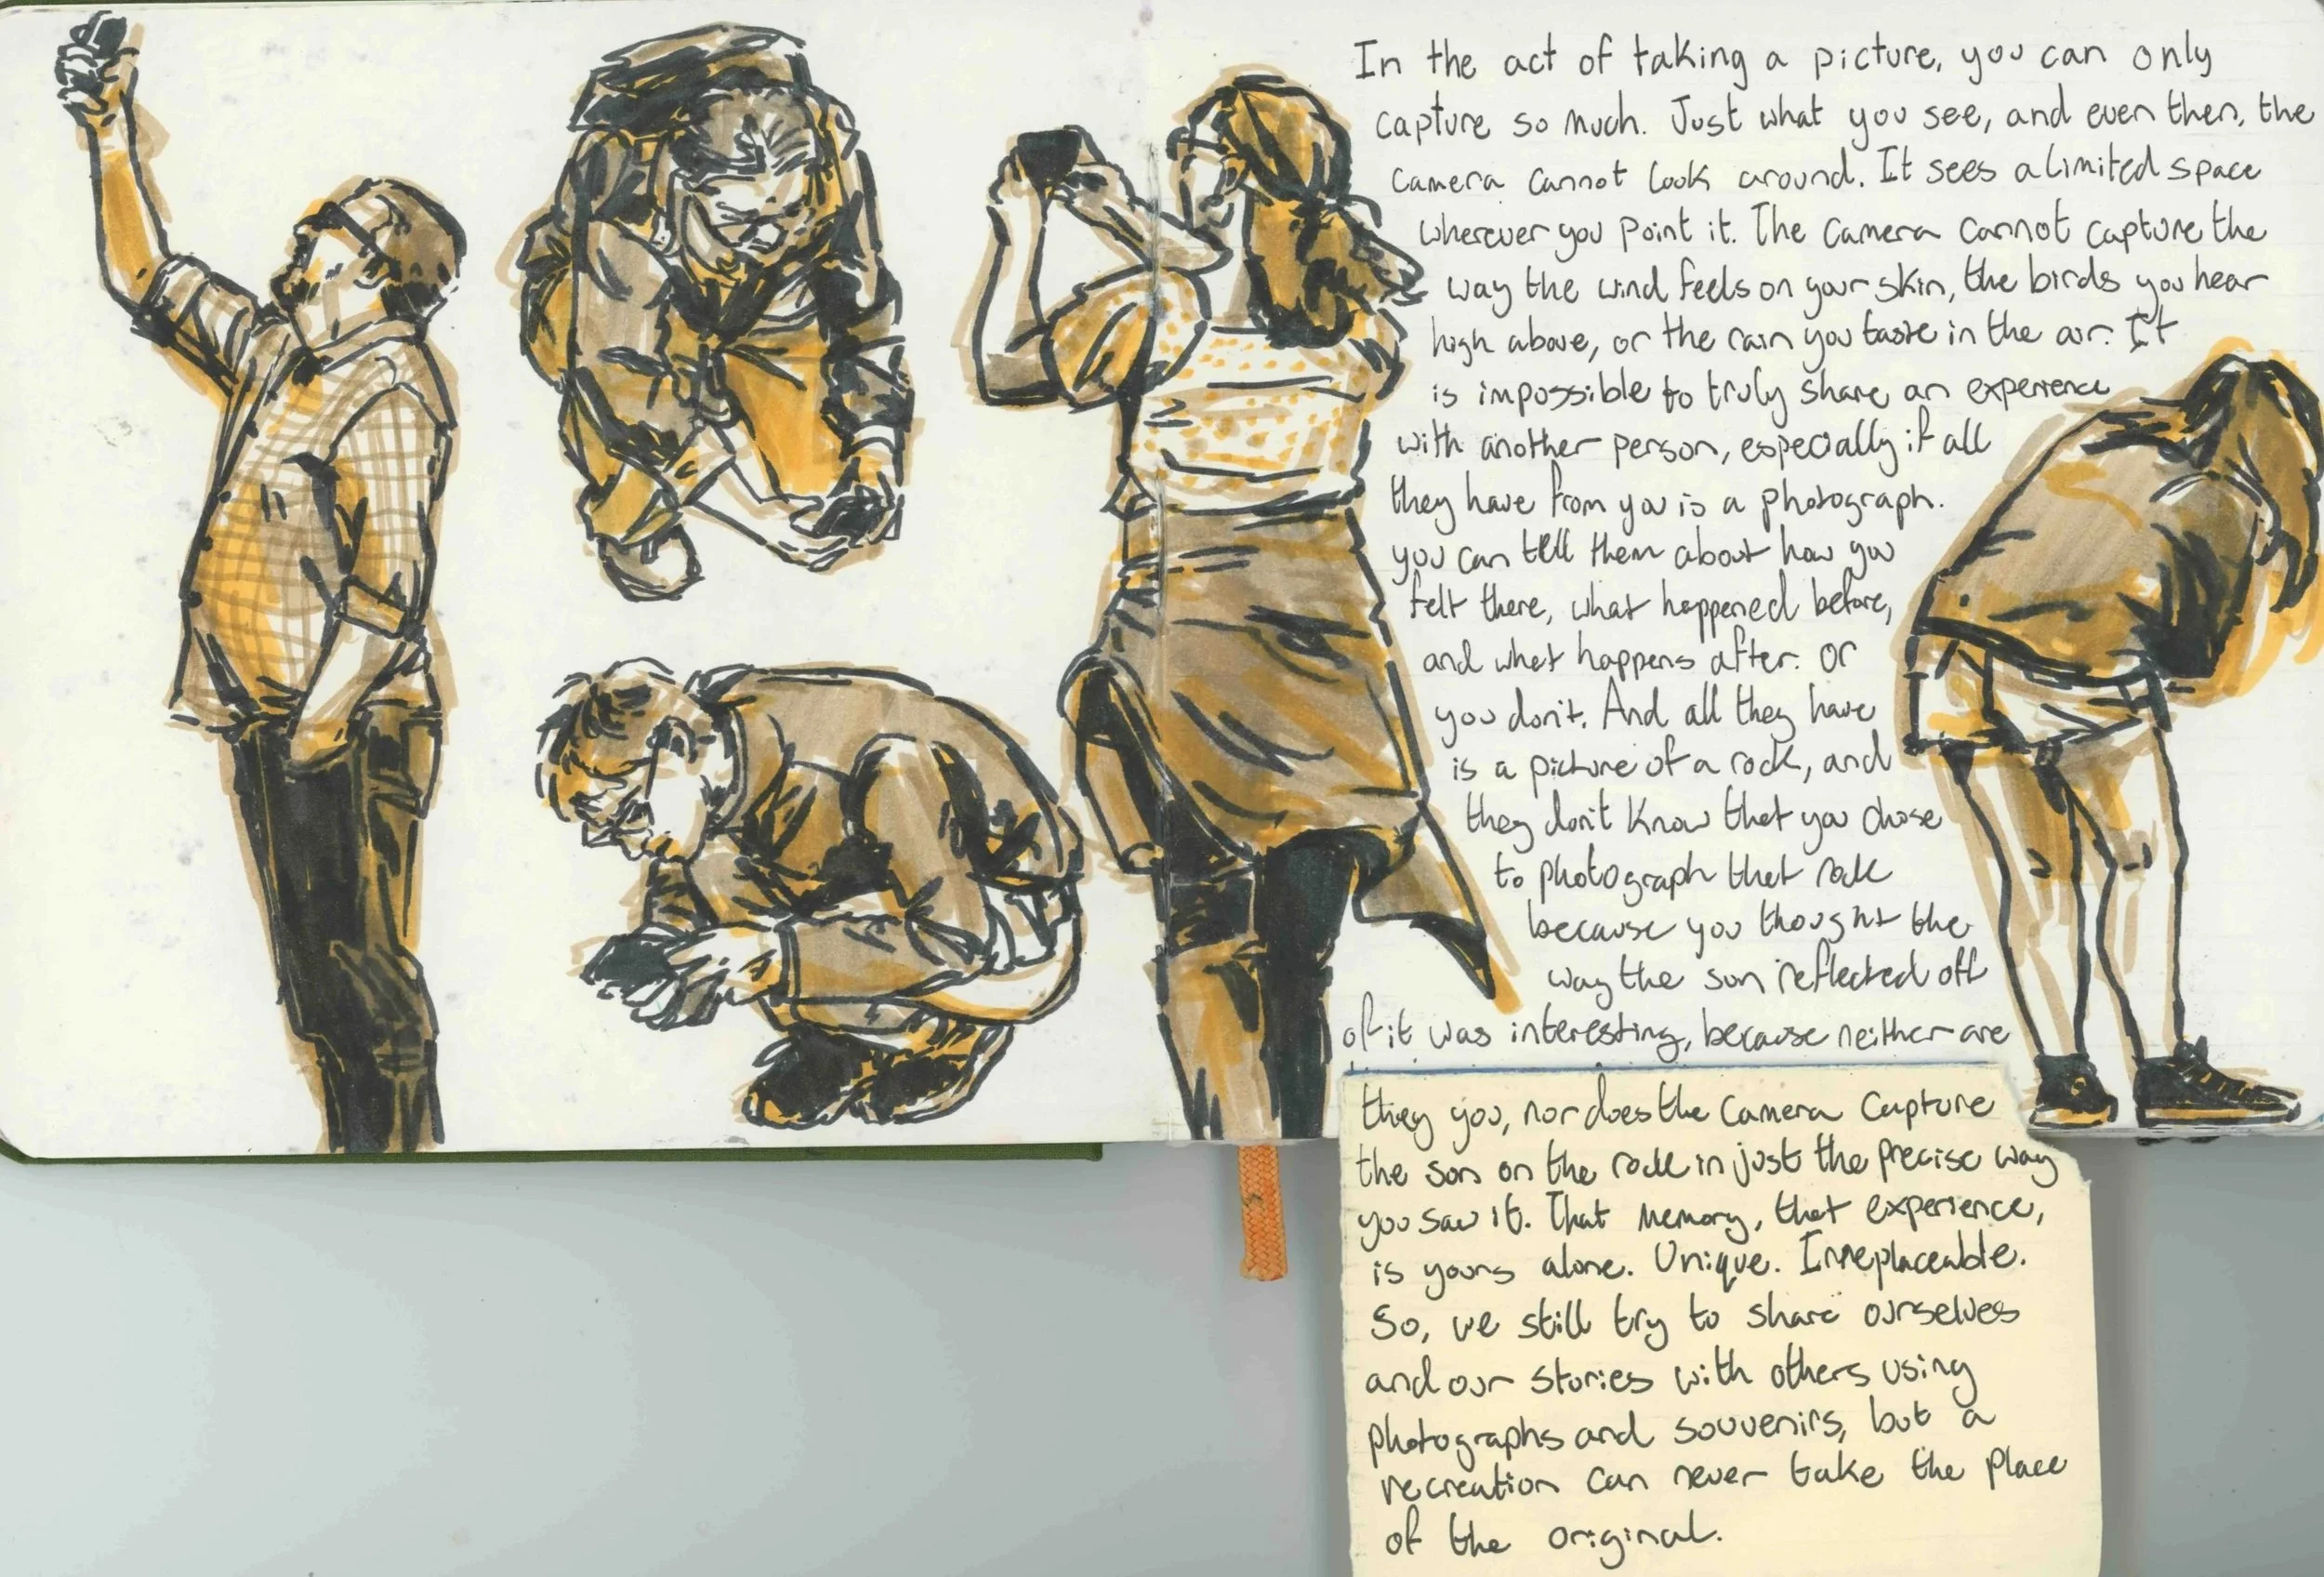 In the act of taking a picture, you can only
capture so much. Just what you see, and even then, the
camera cannot look around. It sees a limited space
wherever you point it. The camera cannot capture the
way the wind feels on your skin, the birds you hear
high above, or the rain you taste in the air. It
is impossible to truly share an experience
with another person, especially if all
they have from you is a photograph.
you can tell them about how you
felt there, what happened before,
and what happens after. Or
you don't. And all they have
is a picture of a rock, and
they don't know that you chose
to photograph that rock
because you thought the
way the sun reflected off
of it was interesting, because neither are
they you, nor does the camera capture
the sun on the rock in just the precise way
you saw it. That memory, that experience,
is yours alone. Unique. Irreplaceable.
So, we still try to share ourselves
and our stories with others using
photographs and souvenirs, but a
recreation can never take the place
of the original.